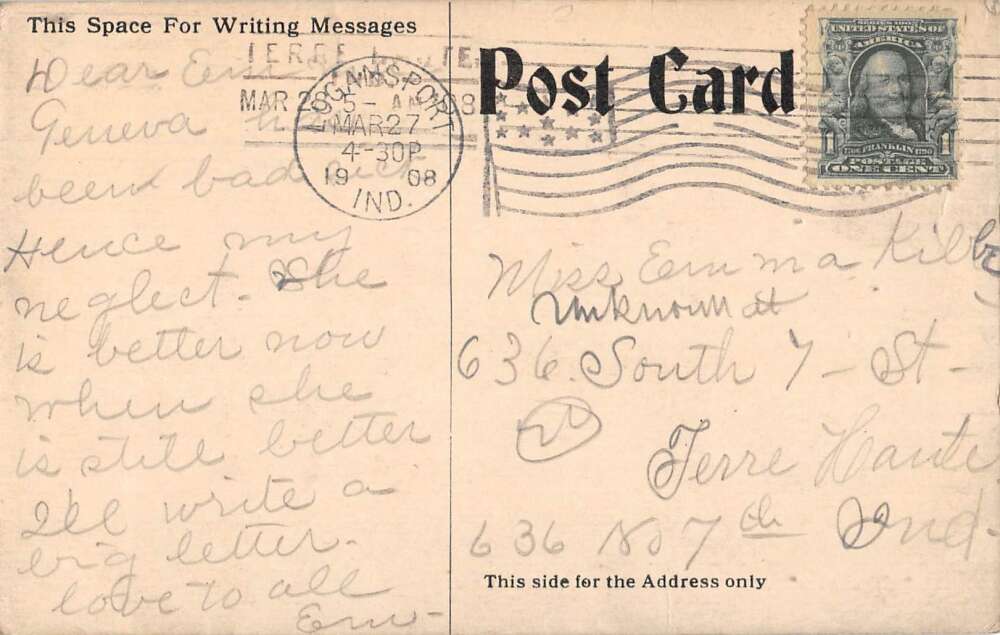 This Space For Writing Messages
Dear Em
Geneva has
been bad sick
Hence my
neglect. She
is better now
when she
is still better
I'll write a
big letter.
love to all
Em-
TERRE HAUTE
MAR 28 5- AM
LOGANSPORT
MAR 27
4-30P
19 08
IND.
Post Card
SERIES 1902
UNITED STATES OF
AMERICA
1 FRANKLIN 1
POSTAGE
ONE CENT
Miss Emma Kilby
Unknown at
636 South 7 - St -
Terre Haute
636 No 7th Ind-
This side for the Address only